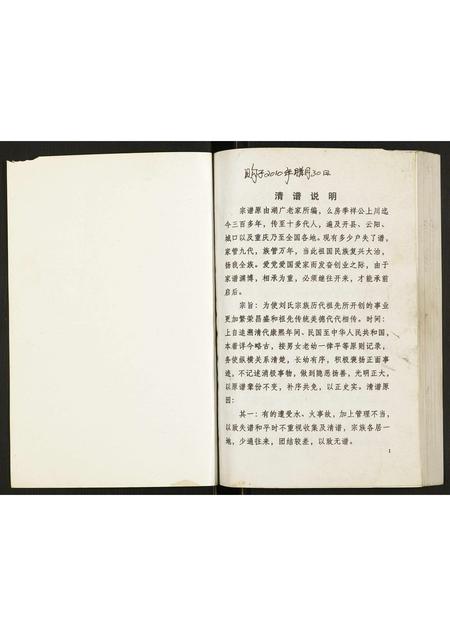 购于2010年腊月30日
清谱说明
宗谱原由湖广老家所编，么房季祥公上川迄
今三百多年，传至十多代人，遍及开县、云阳、
城口以及重庆乃至全国各地。现有多少户失了谱。
家管九代，族管万年，当此祖国民族复兴大治，
扬我全族。爱党爱国爱家而发奋创业之际，由于
家谱渊博，相承为重，必须继往开来，才能承前
启后。
宗旨：为使刘氏宗族历代祖先所开创的事业
更加繁荣昌盛和祖先传统美德代代相传。时间：
上自追溯清代康熙年间、民国至中华人民共和国，
本着详今略古，按男女老幼一律平等原则记录，
务使纵横关系清楚，长幼有序，积极褒扬正面事
迹，不记述消极事物，做到隐恶扬善，光明正大，
以原谱辈份不变，补序共免，以正史实。清谱原
因：
其一：有的遭受水、火事故，加上管理不当，
以致失谱和平时不重视收集及清谱，宗族各居一
地，少通往来，团结较差，以致无谱。
1